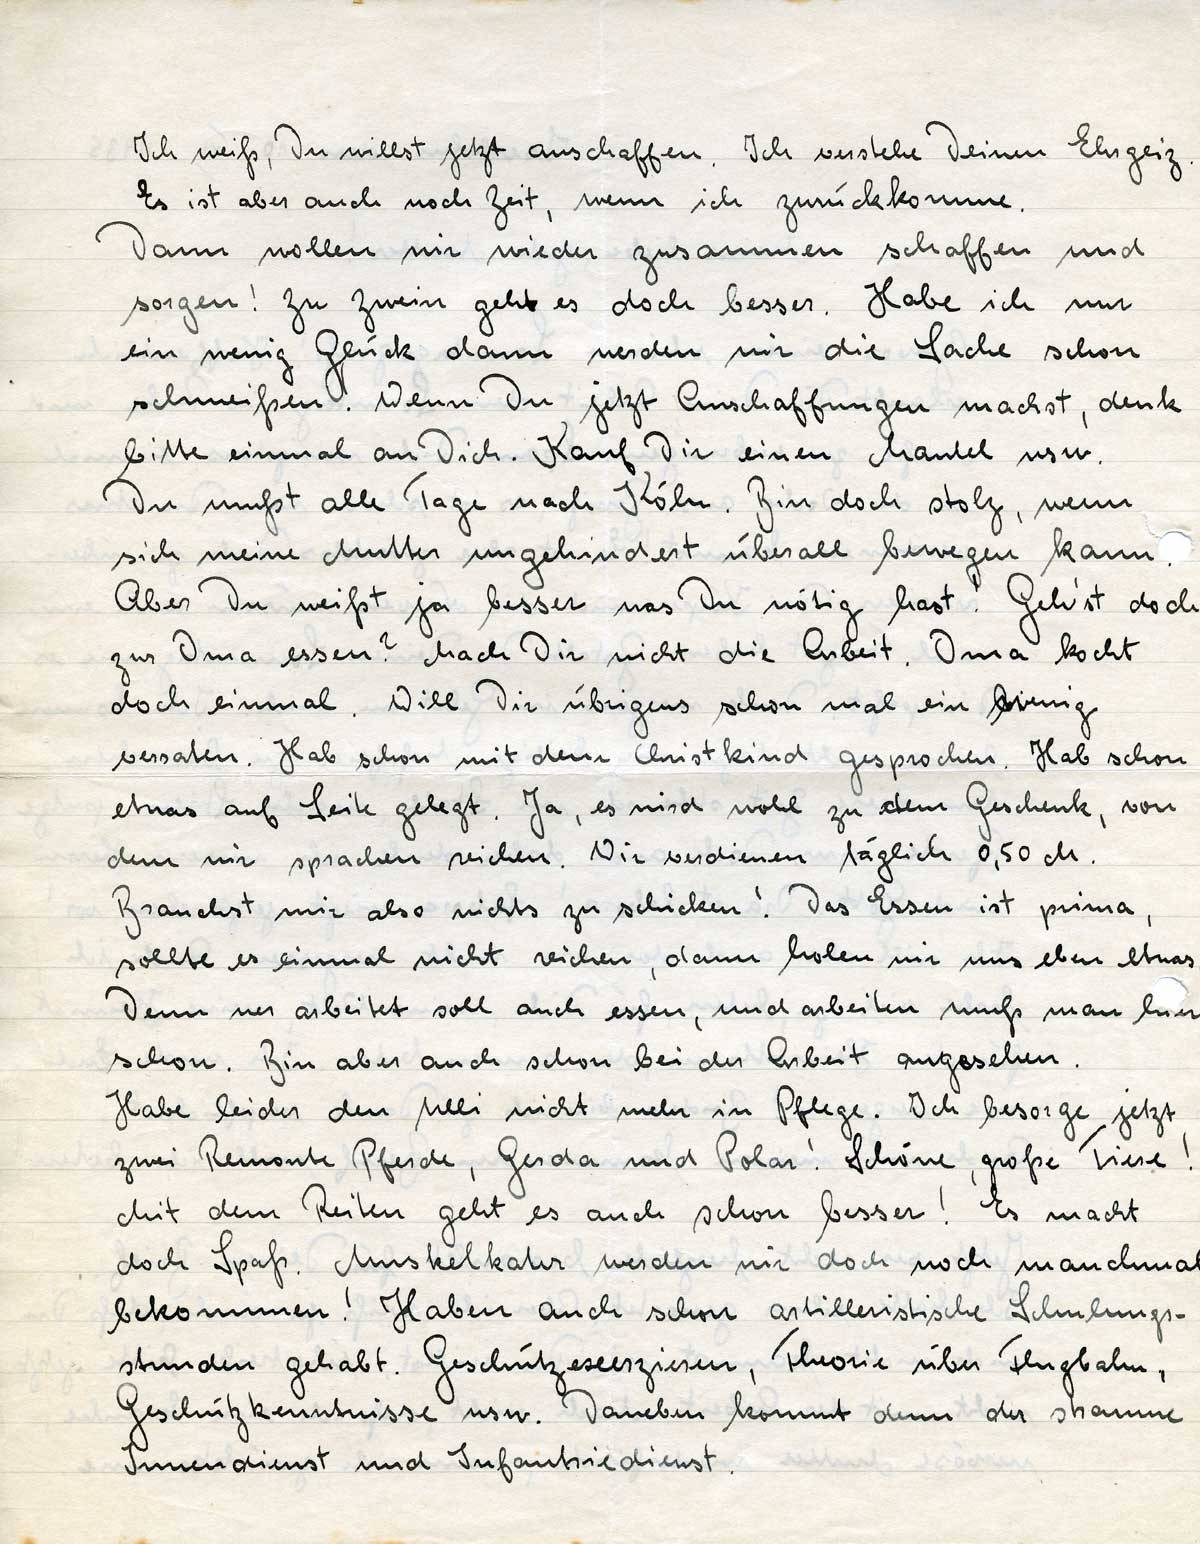 Ich weiß, Du willst jetzt anschaffen. Ich verstehe Deinen Ehrgeiz.
Es ist aber auch noch Zeit, wenn ich zurückkomme.
Dann wollen wir wieder zusammen schaffen und
sorgen! Zu zwein geht es doch besser. Habe ich nur
ein wenig Glück dann werden wir die Sache schon
schmeißen. Wenn Du jetzt Anschaffungen machst, denk
bitte einmal an Dich. Kauf Dir einen Mantel usw.
Du mußt alle Tage nach Köln. Bin doch stolz, wenn
sich meine Mutter ungehindert überall bewegen kann.
Aber Du weißt ja besser was Du nötig hast! Geh'st doch
zur Oma essen? Mach Dir nicht die Arbeit. Oma kocht
doch einmal. Will Dir übrigens schon mal ein wenig
verraten. Hab schon mit dem Christkind gesprochen. Hab schon
etwas auf Seite gelegt. Ja, es wird wohl zu dem Geschenk, von
dem wir sprachen reichen. Wir verdienen täglich 0,50 M.
Brauchst mir also nichts zu schicken! Das Essen ist prima,
sollte es einmal nicht reichen, dann holen wir uns eben etwas
Denn wer arbeitet soll auch essen, und arbeiten muß man hier
schon. Bin aber auch schon bei der Arbeit angesehen.
Habe leider den Ulli nicht mehr in Pflege. Ich besorge jetzt
zwei Remonte Pferde, Gerda und Polar! Schöne, große Tiere!
Mit dem Reiten geht es auch schon besser! Es macht
doch Spaß. Muskelkater werden wir doch noch manchmal
bekommen! Haben auch schon artilleristische Schulungs-
stunden gehabt. Geschützexerzieren, Theorie über Flugbahn,
Geschützkenntnisse usw. Daneben kommt denn der stramme
Innendienst und Infantriedienst.